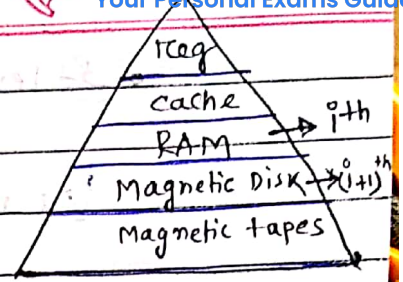 Your Personal Exams Guide
reg
cache
RAM → ith
Magnetic Disk → (i+1)th
Magnetic tapes